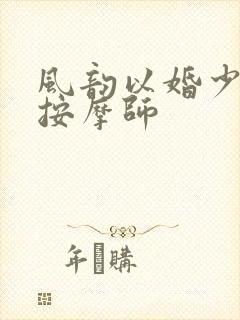 風韵以婚少
按摩師
年購